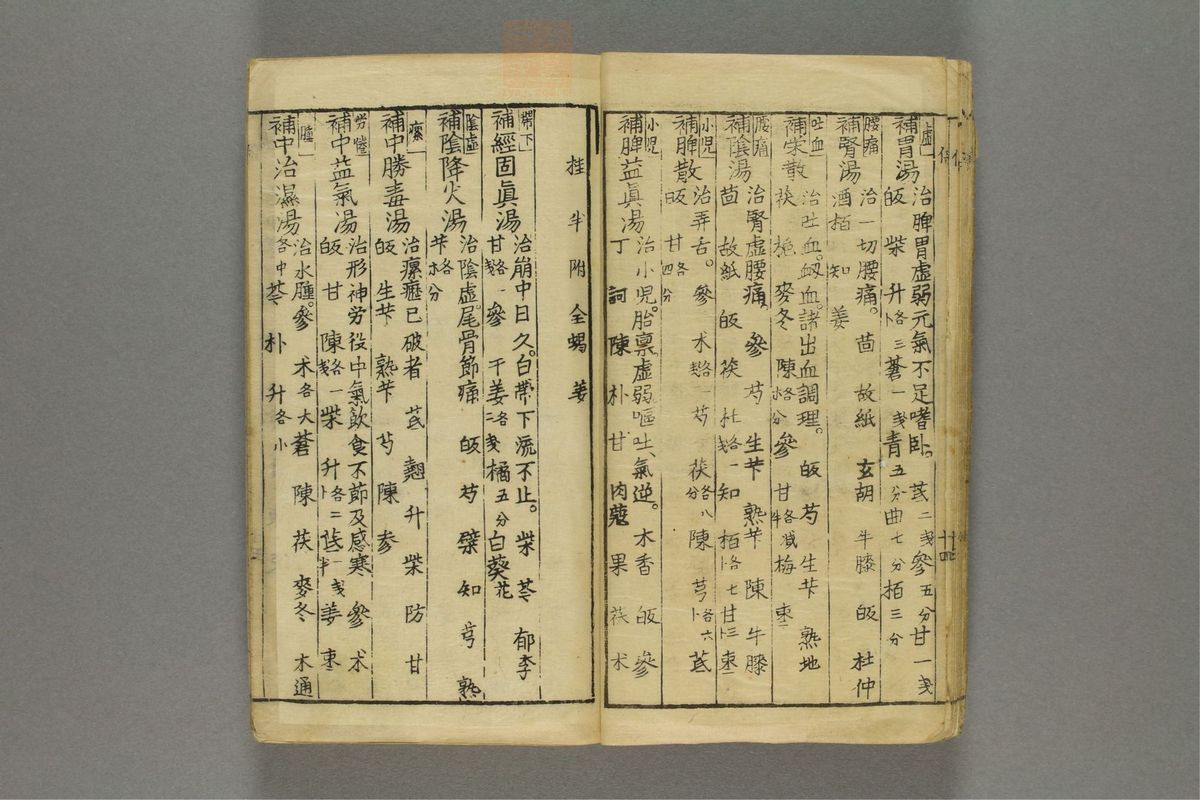 虛
補胃湯
治脾胃虛弱元氣不足嗜卧。芪二戔參五分甘一戔
皈 柴 升各三卜蒼一戔青五分曲七分栢三分
腰痛
補腎湯
治一切腰痛。茴 故紙 玄胡 牛膝 皈 杜仲
酒栢 知 姜
吐血
補荣散
治吐血衂血。諸出血調理。皈 芍 生芐 熟地
茯 梔 麥冬 陳 參 甘 梅 枣
腰痛
補陰湯
治腎虛腰痛。參 芍 生芐 熟芐 陳 牛膝
茴 故紙 皈 茯 杜各一戔知 栢各七卜甘三卜枣
小児
補脾散
治弄舌。參 术各一戔芍 茯各八分陳 芎各六卜芪
皈 甘各四分
小児
補脾益眞湯
治小児胎禀虛弱嘔吐氣逆。木香 皈 參
丁 訶 陳 朴 甘 肉蔻 果 茯 术
桂 半 附 全蝎 姜
帶下
補經固眞湯
治崩中日久。白帶下流不止。柴 苓 郁李
甘各一戔參 干姜各二戔橘五分白葵花
陰虛
補陰降火湯
治陰虛。尾骨節痛 皈 芍 蘗 知 芎 熟
芐各分
瘰
補中勝毒湯
治瘰癧已破者 芪 翹 升 柴 防 甘
皈 生芐 熟芐 芍 陳 參
勞倦
補中益氣湯
治形神労役中氣飲食不節及感寒 參 术
皈 甘 陳各一戔柴 升各二卜芪一戔半姜 枣
腫
補中治濕湯
治水腫。參 术各大蒼 陳 茯 麥冬 木通
各中苓 朴 升各小